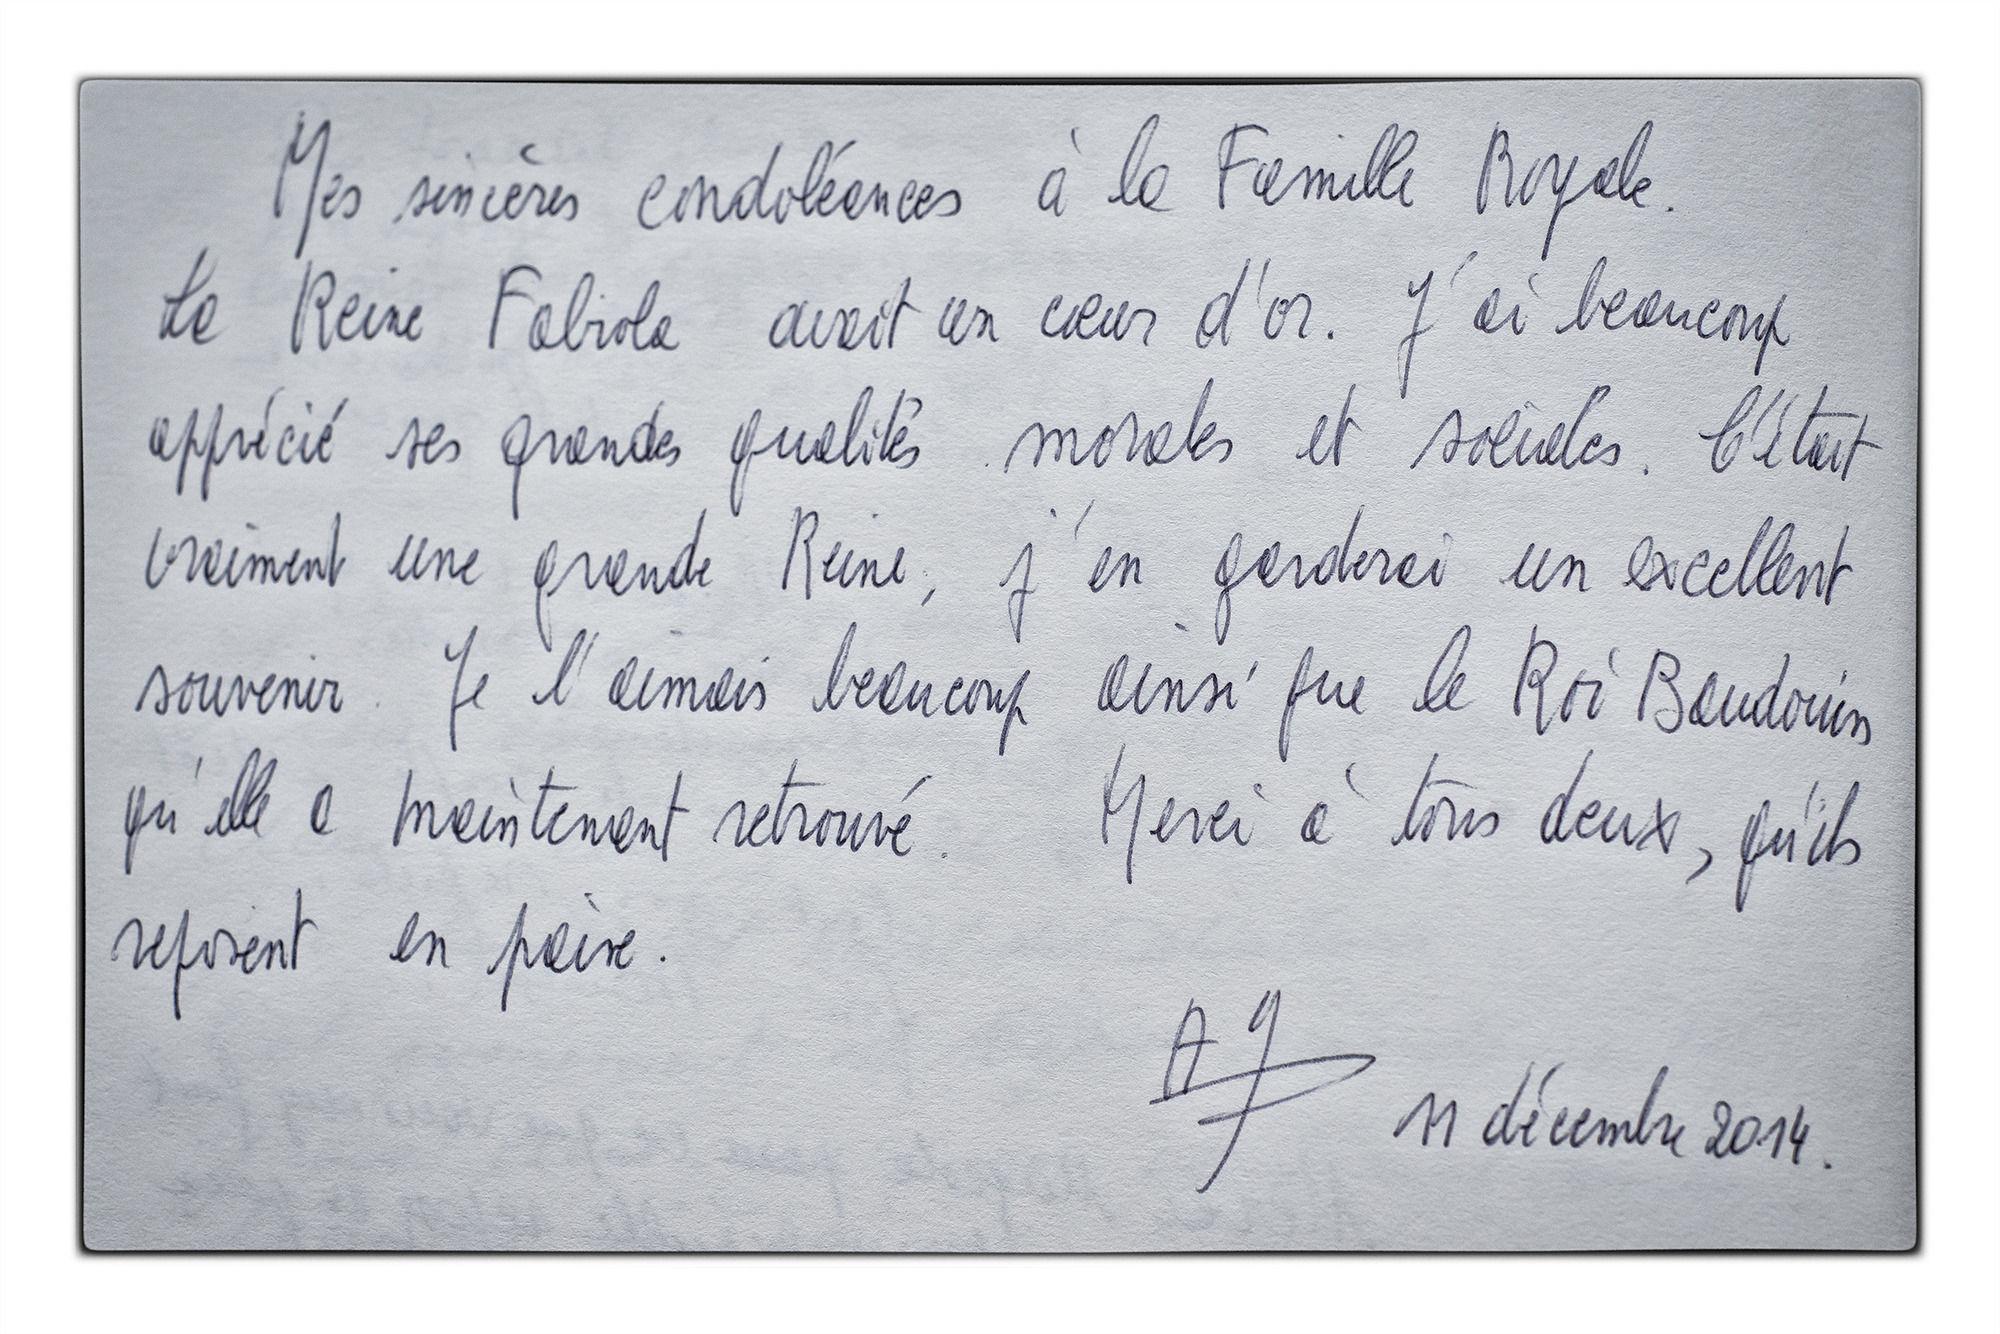 Mes sincères condoléances à la Famille Royale.
La Reine Fabiola avait un cœur d'or. J'ai beaucoup
apprécié ses grandes qualités morales et sociales. C'était
vraiment une grande Reine, j'en garderai un excellent
souvenir. Je l'aimais beaucoup ainsi que le Roi Baudouin
qu'elle a maintenant retrouvé. Merci à tous deux, qu'ils
reposent en paix.
11 décembre 2014.